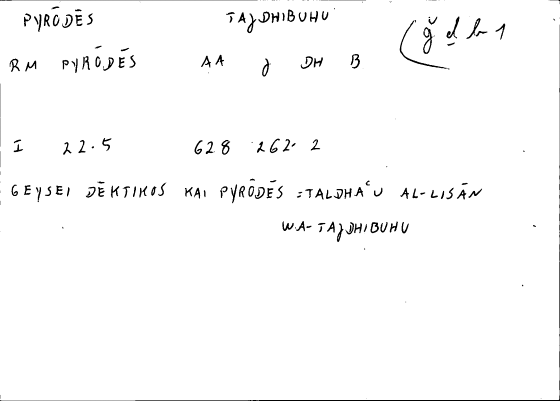 PYRŌDĒS TAJDHIBUHU
ğ ḏ b 1
RM PYRŌDĒS AA J DH B
I 22.5 628 262.2
GEYSEI DĒKTIKOS KAI PYRŌDĒS = TALDHAʿU AL-LISĀN
WA-TAJDHIBUHU